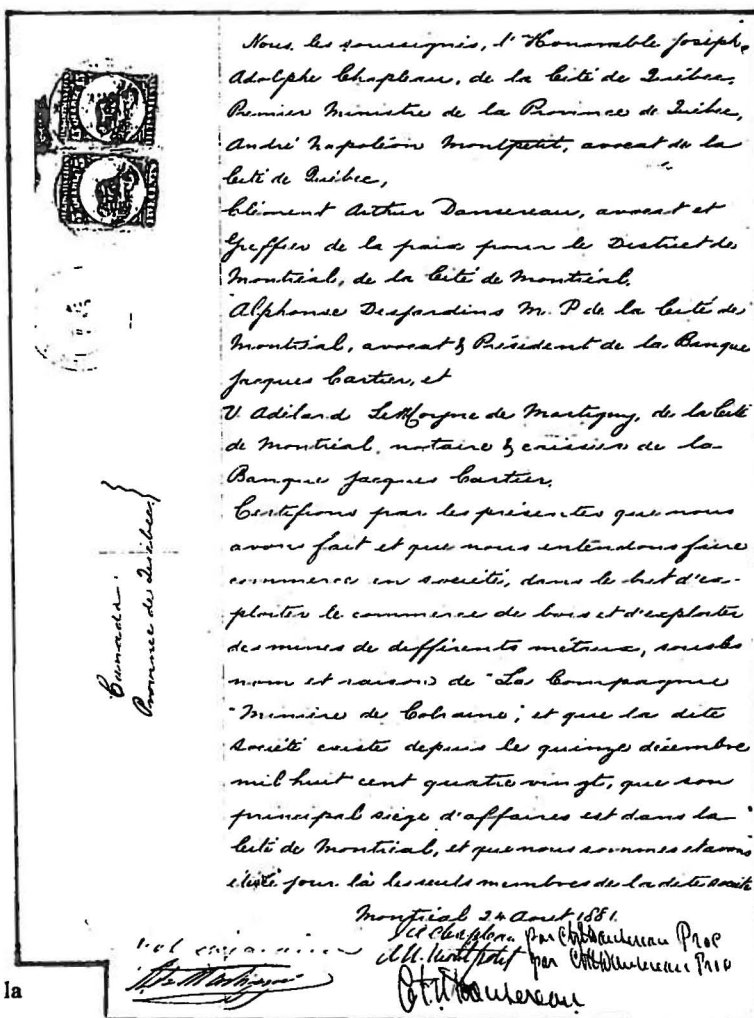 Nous, les soussignés, l'Honorable Joseph
Adolphe Chapleau, de la Cité de Québec,
Premier Ministre de la Province de Québec,
André Napoléon Montpetit, avocat de la
Cité de Québec,
Clément Arthur Dansereau, avocat et
Greffier de la paix pour le District de
Montréal, de la Cité de Montréal,
Alphonse Desjardins M. P de la Cité de
Montréal, avocat & Président de la Banque
Jacques Cartier, et
U. Adélard LeMoyne de Martigny, de la Cité
de Montréal, notaire & caissier de la
Banque Jacques Cartier,
Certifions par les présentes que nous
avons fait et que nous entendons faire
commerce en société, dans le but d'ex-
ploiter le commerce de bois et d'exploiter
des mines de différents métaux, sous les
nom et raison de "La Compagnie
"Minière de Colraine", et que la dite
société existe depuis le quinze décembre
mil huit cent quatre vingt, que son
principal siège d'affaires est dans la
Cité de Montréal, et que nous sommes et avons
été depuis ce jour là les seuls membres de la dite société
Montréal 24 Aout 1881.
JA Chapleau par CADansereau Proc
AN. Montpetit par CADansereau Proc
CADansereau
de Martigny
Canada.
Province de Québec
la